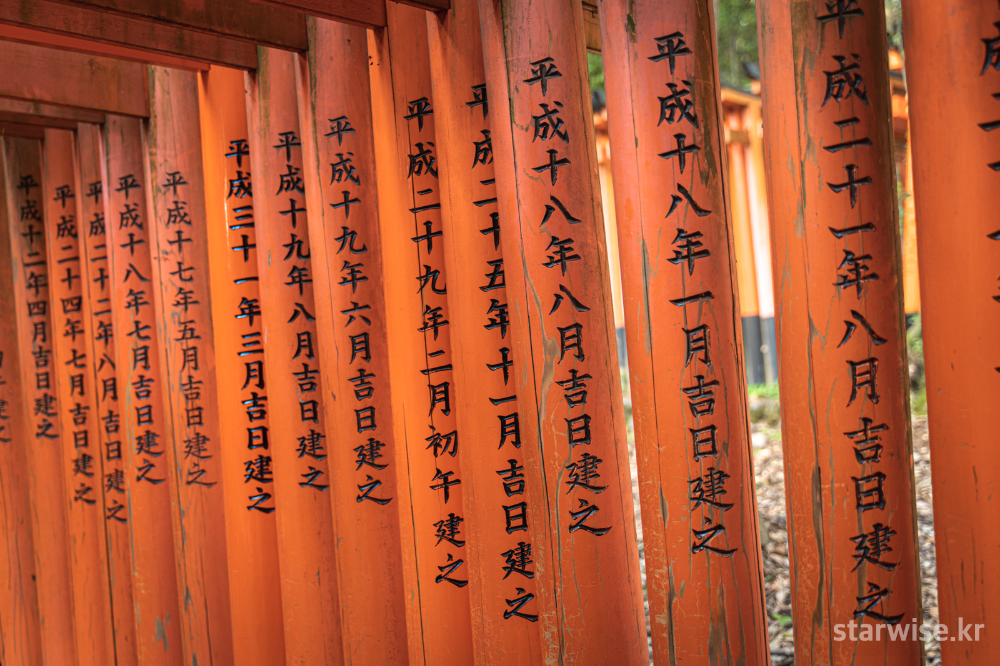 平成二十一年八月吉日建之
平成十八年一月吉日建之
平成十八年八月吉日建之
平成二十五年十一月吉日建之
平成二十九年二月初午建之
平成十九年六月吉日建之
平成十九年八月吉日建之
平成三十一年三月吉日建之
平成十七年五月吉日建之
平成十八年七月吉日建之
平成二十二年八月吉日建之
平成二十四年七月吉日建之
平成十二年四月吉日建
starwise.kr